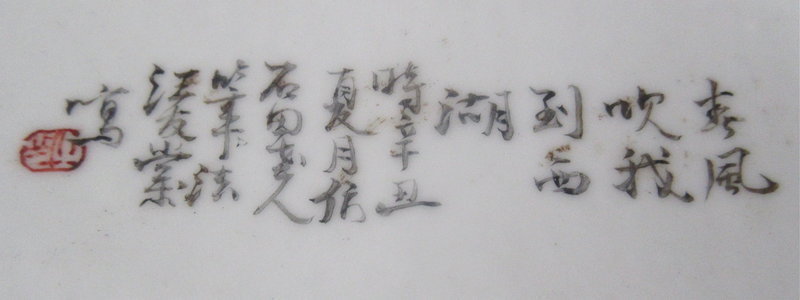 春風
吹我
到西
湖
時辛丑
夏月仿
石田老人
筆法
汪友棠